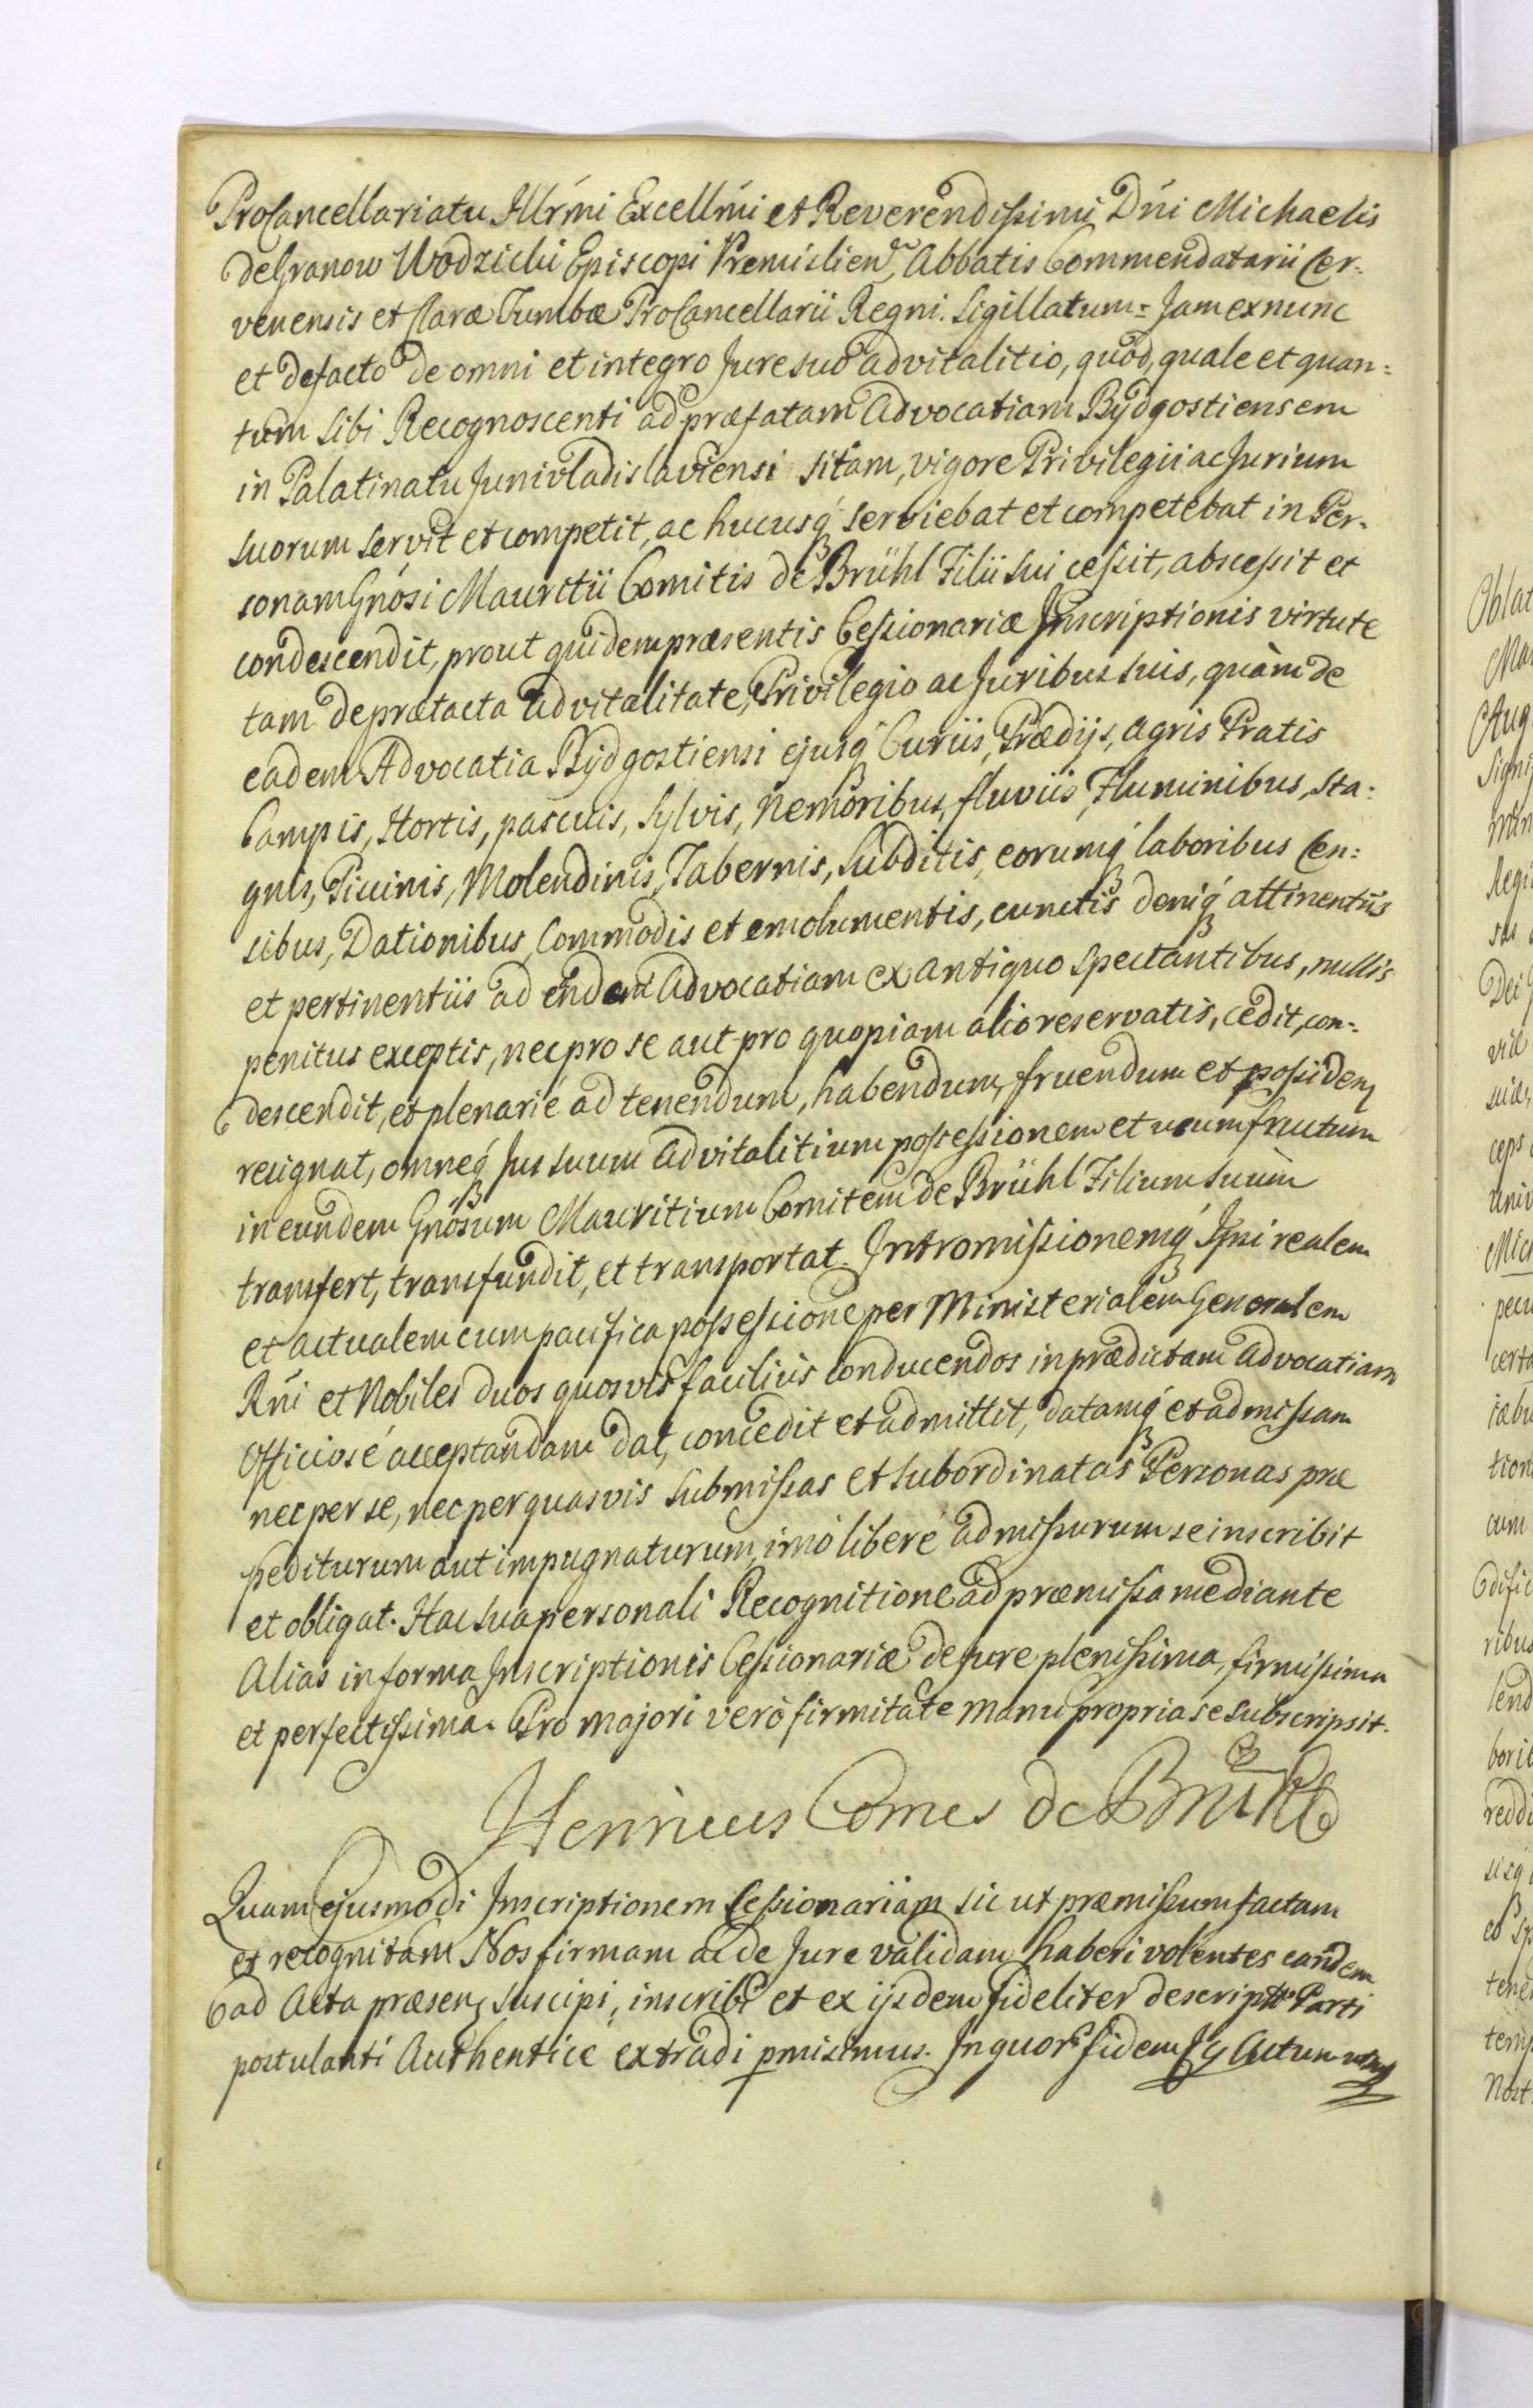 ProCancellariatu Illrmi Excellmi et Reverendissimi Dni Michaelis
de Granow Wodzicki Episcopi Premislien, Abbatis Commendatarii Cer-
venensis et Claræ Tumbæ ProCancellarii Regni. Sigillatum = Jam ex nunc
et de facto de omni et integro Jure suo advitalitio, quod, quale et quan=
tum sibi Recognoscenti ad præfatam Advocatiam Bydgostiensem
in Palatinatu Junivladislaviensi sitam, vigore Privilegii ac Jurium
suorum servit et competit, ac hucusq serviebat et competebat in Per-
sonam Gnosi Mauritii Comitis de Brühl Filii sui cessit, abscessit et
condescendit, prout quidem præsentis Cessionariæ Inscriptionis virtute
tam de prætacta advitalitate, Privilegio ac Juribus suis, quàm de
eadem Advocatia Bydgostiensi ejusq Curiis, Prædijs, Agris Pratis
Campis, Hortis, pascuis, Sylvis, Nemoribus, fluviis, Fluminibus, Sta=
gnis, Piscinis, Molendinis, Tabernis, Subditis, eorumq laboribus Cen=
sibus, Dationibus, Commodis et emolumentis, cunctis deniq attinentiis
et pertinentiis ad eandem Advocatiam ex antiquo spectantibus, nullis
penitus exceptis, nec pro se aut pro quopiam alio reservatis, cedit, con=
descendit, et plenariè ad tenendum, habendum, fruendum et possiden
resignat, omneq Jus suum advitalitium possessionem et usumfructum
in eundem Gnosum Mauritium Comitem de Brühl Filium suum
transfert, transfundit, et transportat. Intromissionemq Ipsi realem
et actualem cum pacifica possessione per Ministerialem Generalem
Rni et Nobiles duos quosvis facilius conducendos in prædictam Advocatiam
Officiosè acceptandam dat, concedit et admittit, datamq et admissam
nec per se, nec per quasvis submissas et subordinatas Personas præ
pediturum aut impugnaturum, imò liberè admissurum se inscribit
et obligat. Hac sua personali Recognitione ad præmissa mediante
Alias in forma Inscriptionis Cessionariæ de jure plenissima, firmissima
et perfectissima. Pro majori verò firmitate manu propria se subscripsit.
Henricus Comes de Brühl
Quam ejusmodi Inscriptionem Cessionariam sic ut præmissum factam
et recognitam Nos firmam ac de Jure validam haberi volentes eandem
ad Acta præsen suscipi, inscribi et ex ijsdem fideliter descriptã Parti
postulanti Authenticè extradi pmisimus. In quor fidem Actum